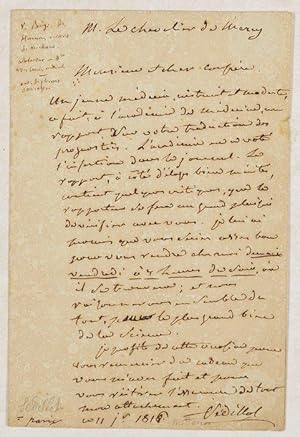 M. Le chevalier de Mercy
Monsieur et cher confrère
Un jeune médecin, instruit et modeste,
a fait, à l'académie de médecine, un
rapport sur votre traduction des
prognostics. L'académie en a voté
l'insertion dans le journal. Le
rapport, à côté d'éloges bien mérités,
contient quelques critiques, que le
rapporteur se fera un grand plaisir
de avec vous. je lui ai
promis que vous seriez assez bon
pour vous rendre chez moi demain
vendredi à 7 heures du soir, où
il se trouvera; et nous
ensemble du
tout, pour le plus grand bien
de la Science.
je profite de cette occasion pour
vous remercier du cadeau que
vous m'avez fait et pour
vous réitérer l'assurance de tout
mon attachement
Sédillot
ce 11 1816
Sédillot
paris